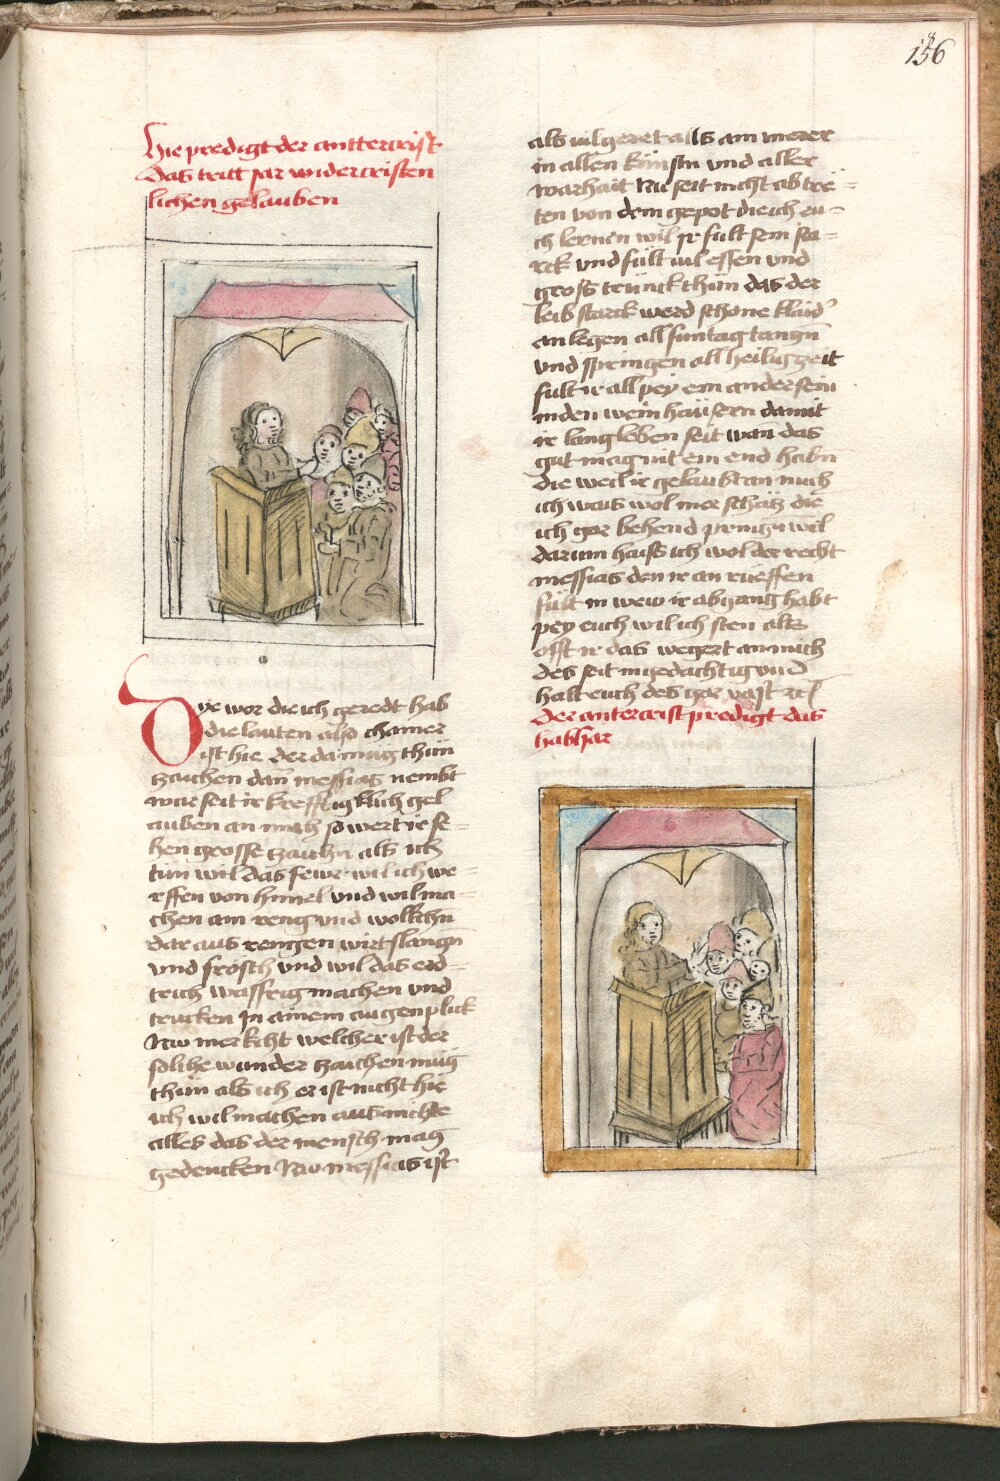 156
hie predigt der anttercrist
das tritt jar wider cristen
lichen gelauben
Dye wor die ich geredt hab
die lauten also chainer
ist hie der da mug thün
zaichen dan messias nembt
war seit ir krefftigklich gel
auben an mich so wert ir se=
hen grosse zaichn als ich
tün wil das fewr wil ich we=
rffen von himel und wil ma=
chen ain reng und wolkchn
dar aus rengen wirt slangn
und frosch und wil das erd=
trich wassrig machen und
trucken In ainem augenplick
Nw merkcht welcher ist der
solche wunder zaichen mug
thün als ich er ist nicht hie
ich wil machen aus nichte
alles das der mensch mag
gedencken Nw messias ist
als vil geret als ain merer
in allen künstn und aller
warhait Nu seit nicht ab tre=
ten von dem gepot die ich eu=
ch lernen wil ir sült sein sta=
rck und sült vil essen und
gross trünck thün das der
leib starck werd schone klaid
an legen all suntag tanzn
und springen all heilig zeit
sült ir all pey ein ander sein
in den wein haüsern damit
ir lang leben seit wan das
gut mag nit ein end habn
die weil ir gelaubt an mich
ich wais wol mer schätz die
ich gar behend pringn wil
darum haiss ich wol der recht
messias den ir an rüeffen
sült in wew ir abgang habt
pey euch wil ich sten als
offt ir das wegert an mich
des seit ingedachtig und
halt euch des gar vast etc
Der antercrist predigt das
halb jar